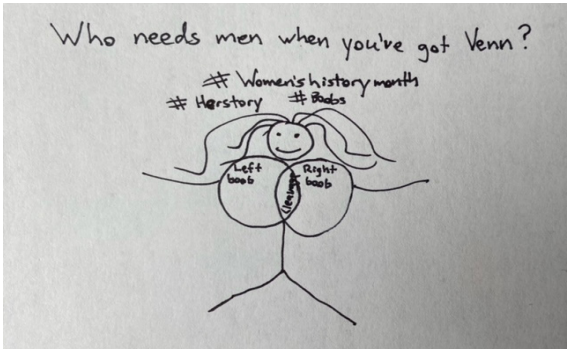 Who needs men when you've got Venn?
# Women's history month
# Herstory # Boobs
Left boob
Right boob
Cleavage